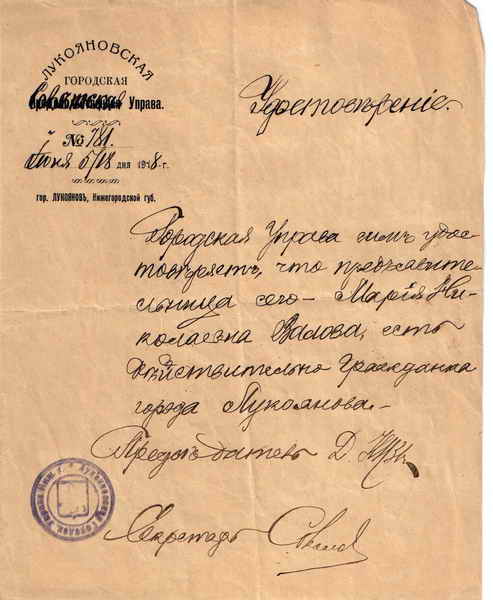 ЛУКОЯНОВСКАЯ
ГОРОДСКАЯ
Советская Управа.
№ 781.
Июня 5/18 дня 1918 г.
гор. ЛУКОЯНОВЪ, Нижегородской губ.
Удостовѣреніе.
Городская Управа симъ удос-
товѣряетъ, что предъявите-
льница сего – Марія Ни-
колаевна Валова, есть
дѣйствительно Гражданка
города Лукоянова. –
Предсѣдатель Д.
Секретарь